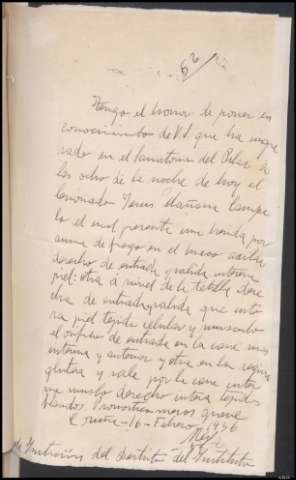 62
Tengo el honor de poner en
conocimiento de V.I. que ha ingre
sado en el Sanatorio del Pilar a
las ocho de la noche de hoy el
lesionado Jesus Mañana
lo el cual presenta una herida por
arma de fuego en el brazo
derecho de entrada y salida
piel: otra a nivel de la tetilla dere
cha de entrada y salida que inte
ra piel tejido celular y musculo
el orificio de entrada en la cara mas
interna y anterior y otra en la region
glutea y sale por la cara
muslo derecho intera tejidos
blandos. Pronostico menos grave
16 - Febrero 1936
Instrucción del Distrito del Instituto